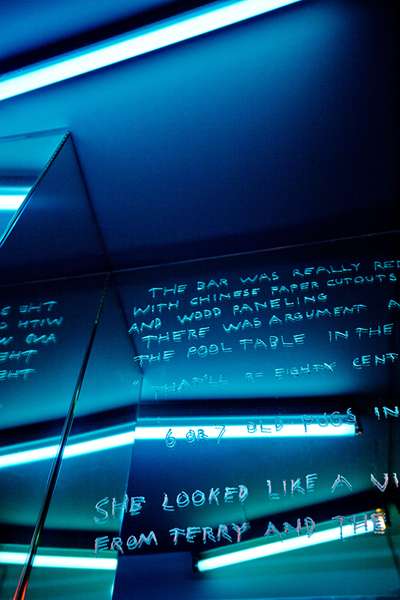 THE BAR WAS REALLY RED
WITH CHINESE PAPER CUTOUTS
AND WOOD PANELING
THERE WAS ARGUMENT A
THE POOL TABLE IN THE
THAT'LL BE EIGHTY CENT
6 OR 7 OLD PUGS IN
SHE LOOKED LIKE A VI
FROM TERRY AND THE